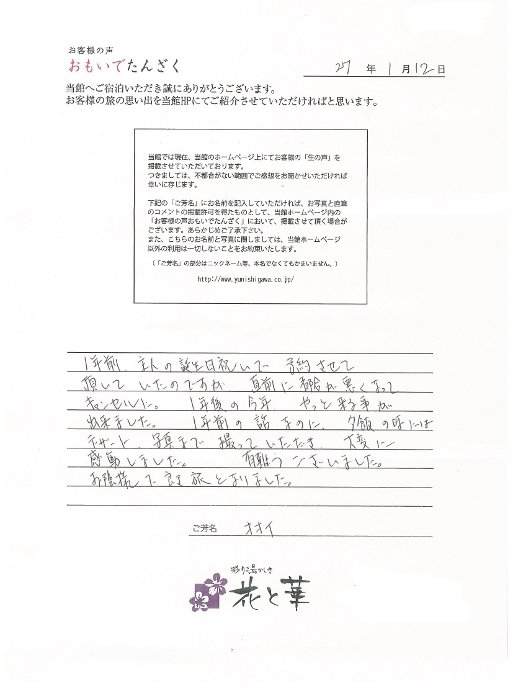 お客様の声
おもいでたんざく
27年1月12日
当館へご宿泊いただき誠にありがとうございます。
お客様の旅の思い出を当館HPにてご紹介させていただければと思います。
当館では現在、当館のホームページ上にてお客様の「生の声」を
掲載させていただいております。
つきましては、不都合がない範囲でご感想をお聞かせいただければ
幸いに存じます。
下記の「ご芳名」にお名前を記入していただければ、お写真と直筆
のコメントの掲載許可を得たものとして、当館ホームページ内の
「お客様の声おもいでたんざく」において、掲載させて頂く場合が
ございます。あらかじめご了承下さい。
また、こちらのお名前と写真に関しましては、当館ホームページ
以外の利用は一切しないことをお約束いたします。
(「ご芳名」の部分はニックネーム等、本名でなくてもかまいません。)
http://www.yunishigawa.co.jp/
1年前、主人の誕生日祝いで 予約させて
頂していたのですが 直前に都合が悪くなって
キャンセルした。 1年後の今年 やっと来る事が
出来ました。 1年前の話なのに、夕飯の時には
デザート、写真まで撮っていただき 大変に
感動しました。 有難うございました。
お陰様で良き旅となりました。
ご芳名 オオイ
花と華